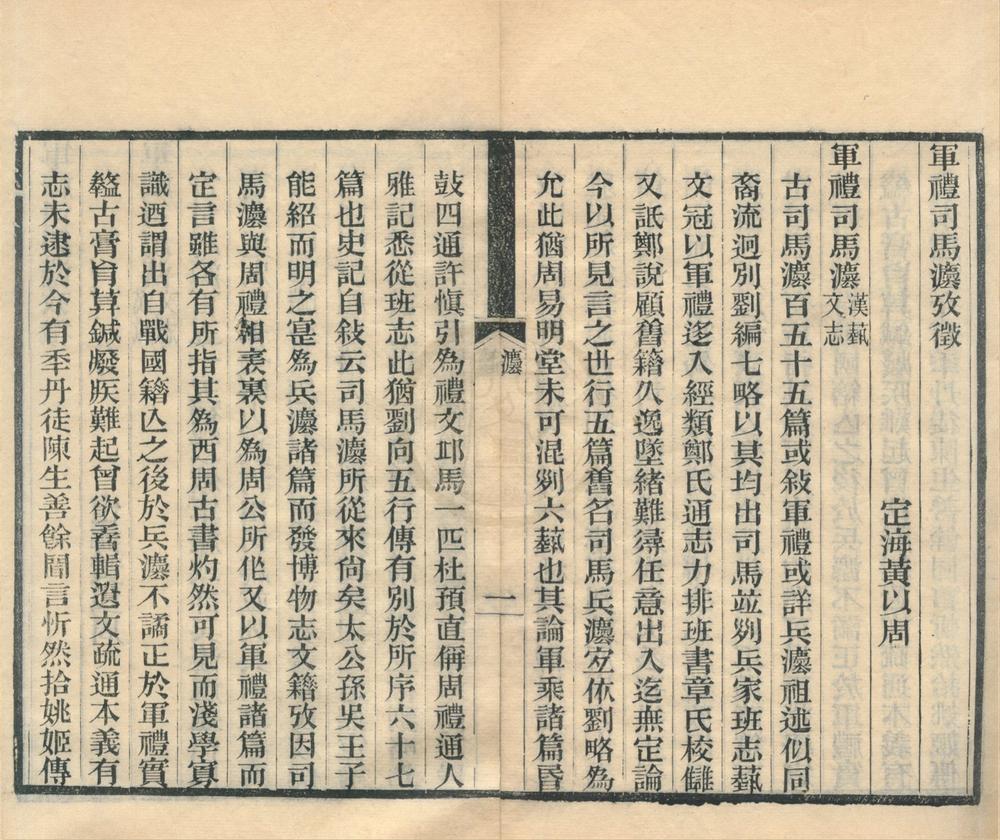 軍禮司馬灋攷徵
定海黃以周
軍禮司馬灋漢蓺文志
古司馬灋百五十五篇或敍軍禮或詳兵灋祖述似同
裔流迥別劉編七略以其均出司馬竝列兵家班志蓺
文冠以軍禮迻入經類鄭氏通志力排班書章氏校讎
又詆鄭說顧舊籍久逸墜緒難㝵任意出入迄無定論
今以所見言之世行五篇舊名司馬兵灋宐依劉略為
允此猶周易明堂未可混列六蓺也其論軍乘諸篇昬
灋
一
鼓四通許愼引為禮文邱馬一匹杜預直偁周禮通人
雅記悉從班志此猶劉向五行傳有別於所序六十七
篇也史記自敍云司馬灋所從來尙矣太公孫吳王子
能紹而明之寔為兵灋諸篇而發博物志文籍攷因司
馬灋與周禮相表裏以為周公所作又以軍禮諸篇而
定言雖各有所指其為西周古書灼然可見而淺學寡
識迺謂出自戰國籍亾之後於兵灋不譎正於軍禮實
盭古膏肓算鍼癈疾難起曾欲蒼輯遺文疏通本義有
志未逮於今有季丹徒陳生善餘聞言忻然拾姚姬傳